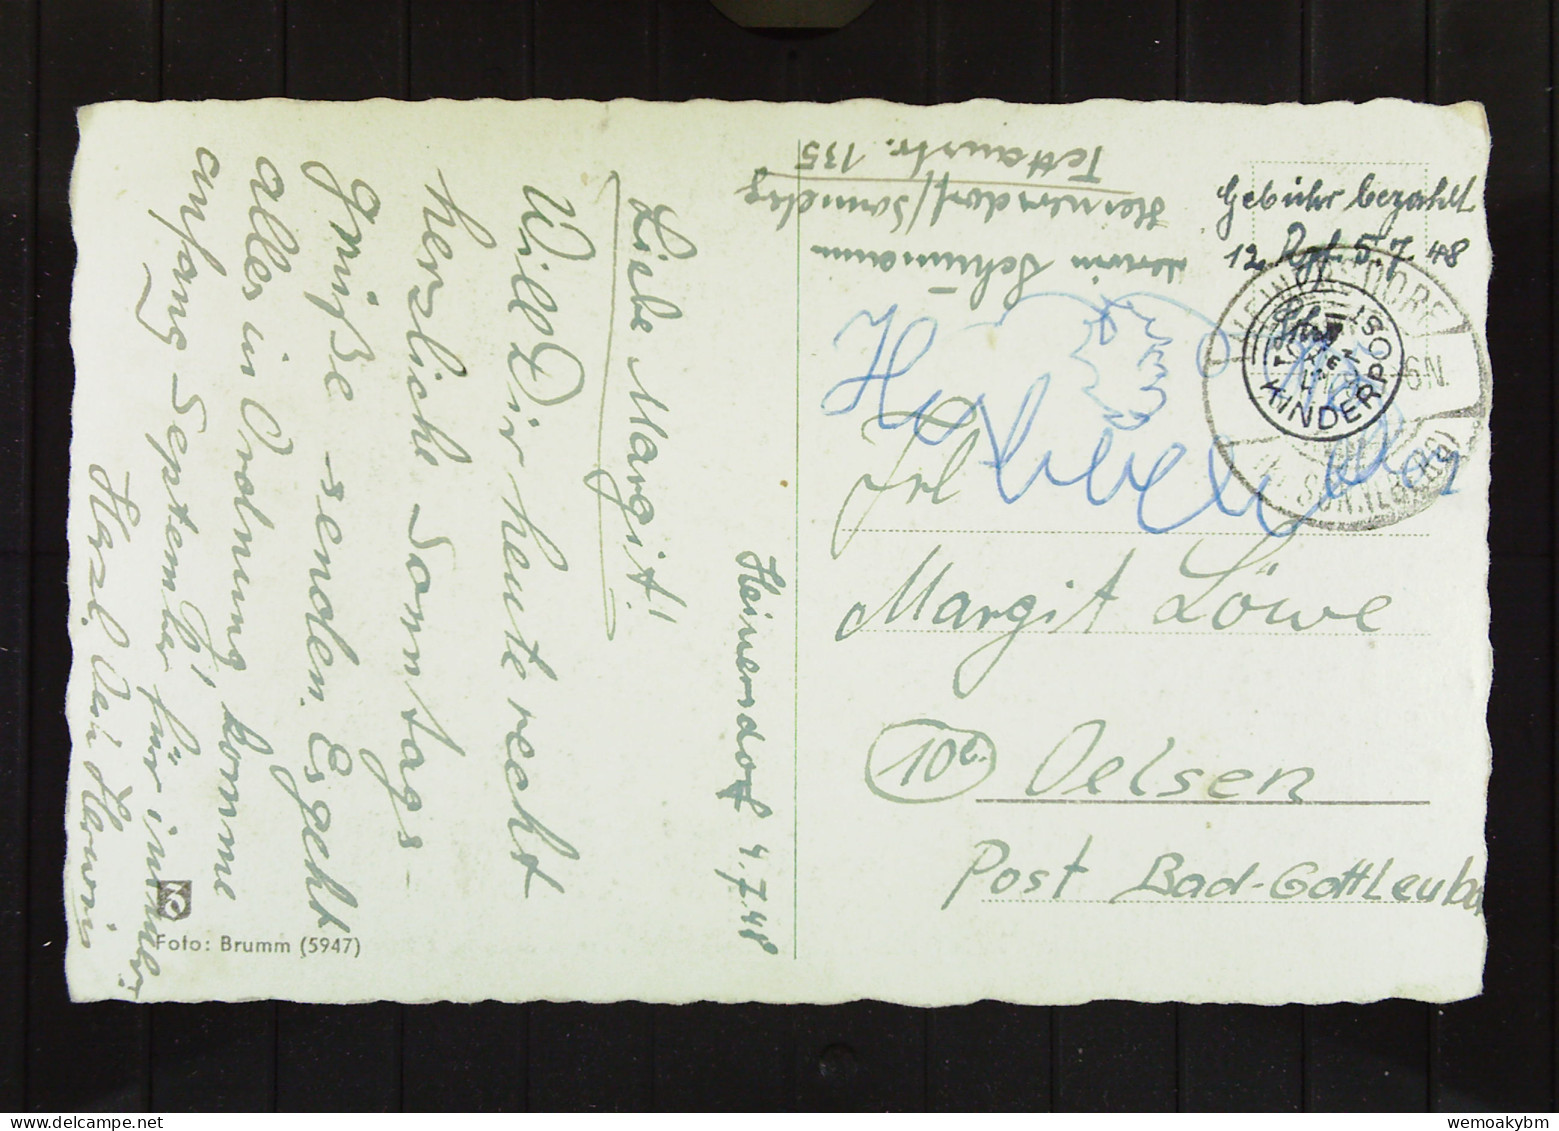 Heinersdorf 4.7.48
Liebe Margit!
Will Dir heute recht
herzliche Sonntags-
grüße senden. Es geht
alles in Ordnung komme
anfang September für immer.
Herzl. Dein
Foto: Brumm (5947)
Schumann
Heinersdorf/Sonnebg
Tettaustr. 135
Gebühr bezahlt
12 Rpf. 5.7.48
KINDERPOST
Frl
Margit Löwe
10a Oelsen
Post Bad-Gottleuba
wemoakybm